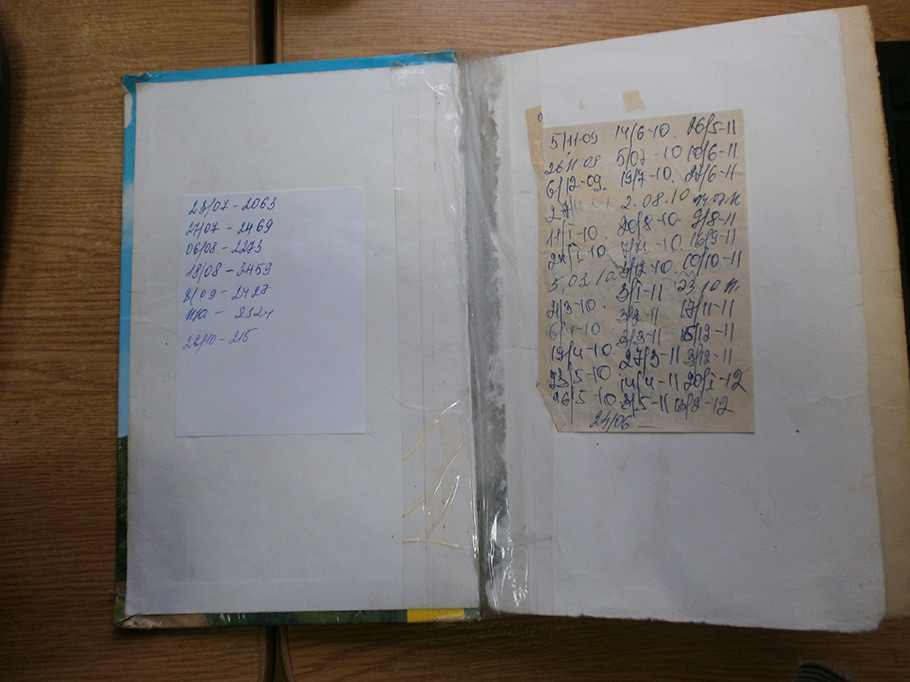 23/07 - 2063
27/07 - 2469
06/08 - 2273
18/08 - 2459
8/09 - 2427
- 2324
28/10 - 215
5/11-09 14/6-10. 26/5-11
26.11.09. 5/07-10 10/6-11
6/12-09. 19/7-10. 27/6-11
27/ 2.08.10 14.07.11
11/I-10 20/8-10. 9/8-11
24/I-10 -10. 16/9-11
5.02.10 5/12-10. 10/10-11
3/I-11 23.10.11.
21/3-10. 3/2-11 17/11-11
-10 2/3-11 15/12-11
19/4-10. 27/3-11 3/12-11
23/5-10 14/4-11 20/I-12
26/5-10 3/5-11 13/2-12
24/06 —